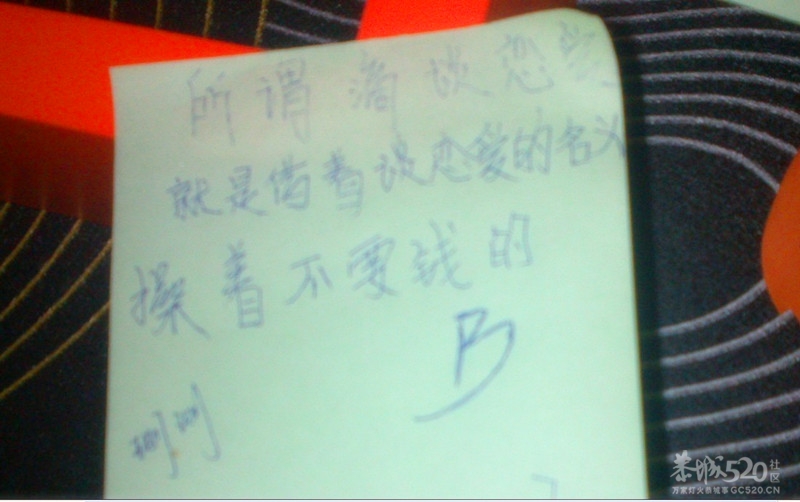 所谓滴谈恋爱
就是借着谈恋爱的名义
操着不要钱的
B
恭城520社区
万家灯火恭城事 GC520.CN